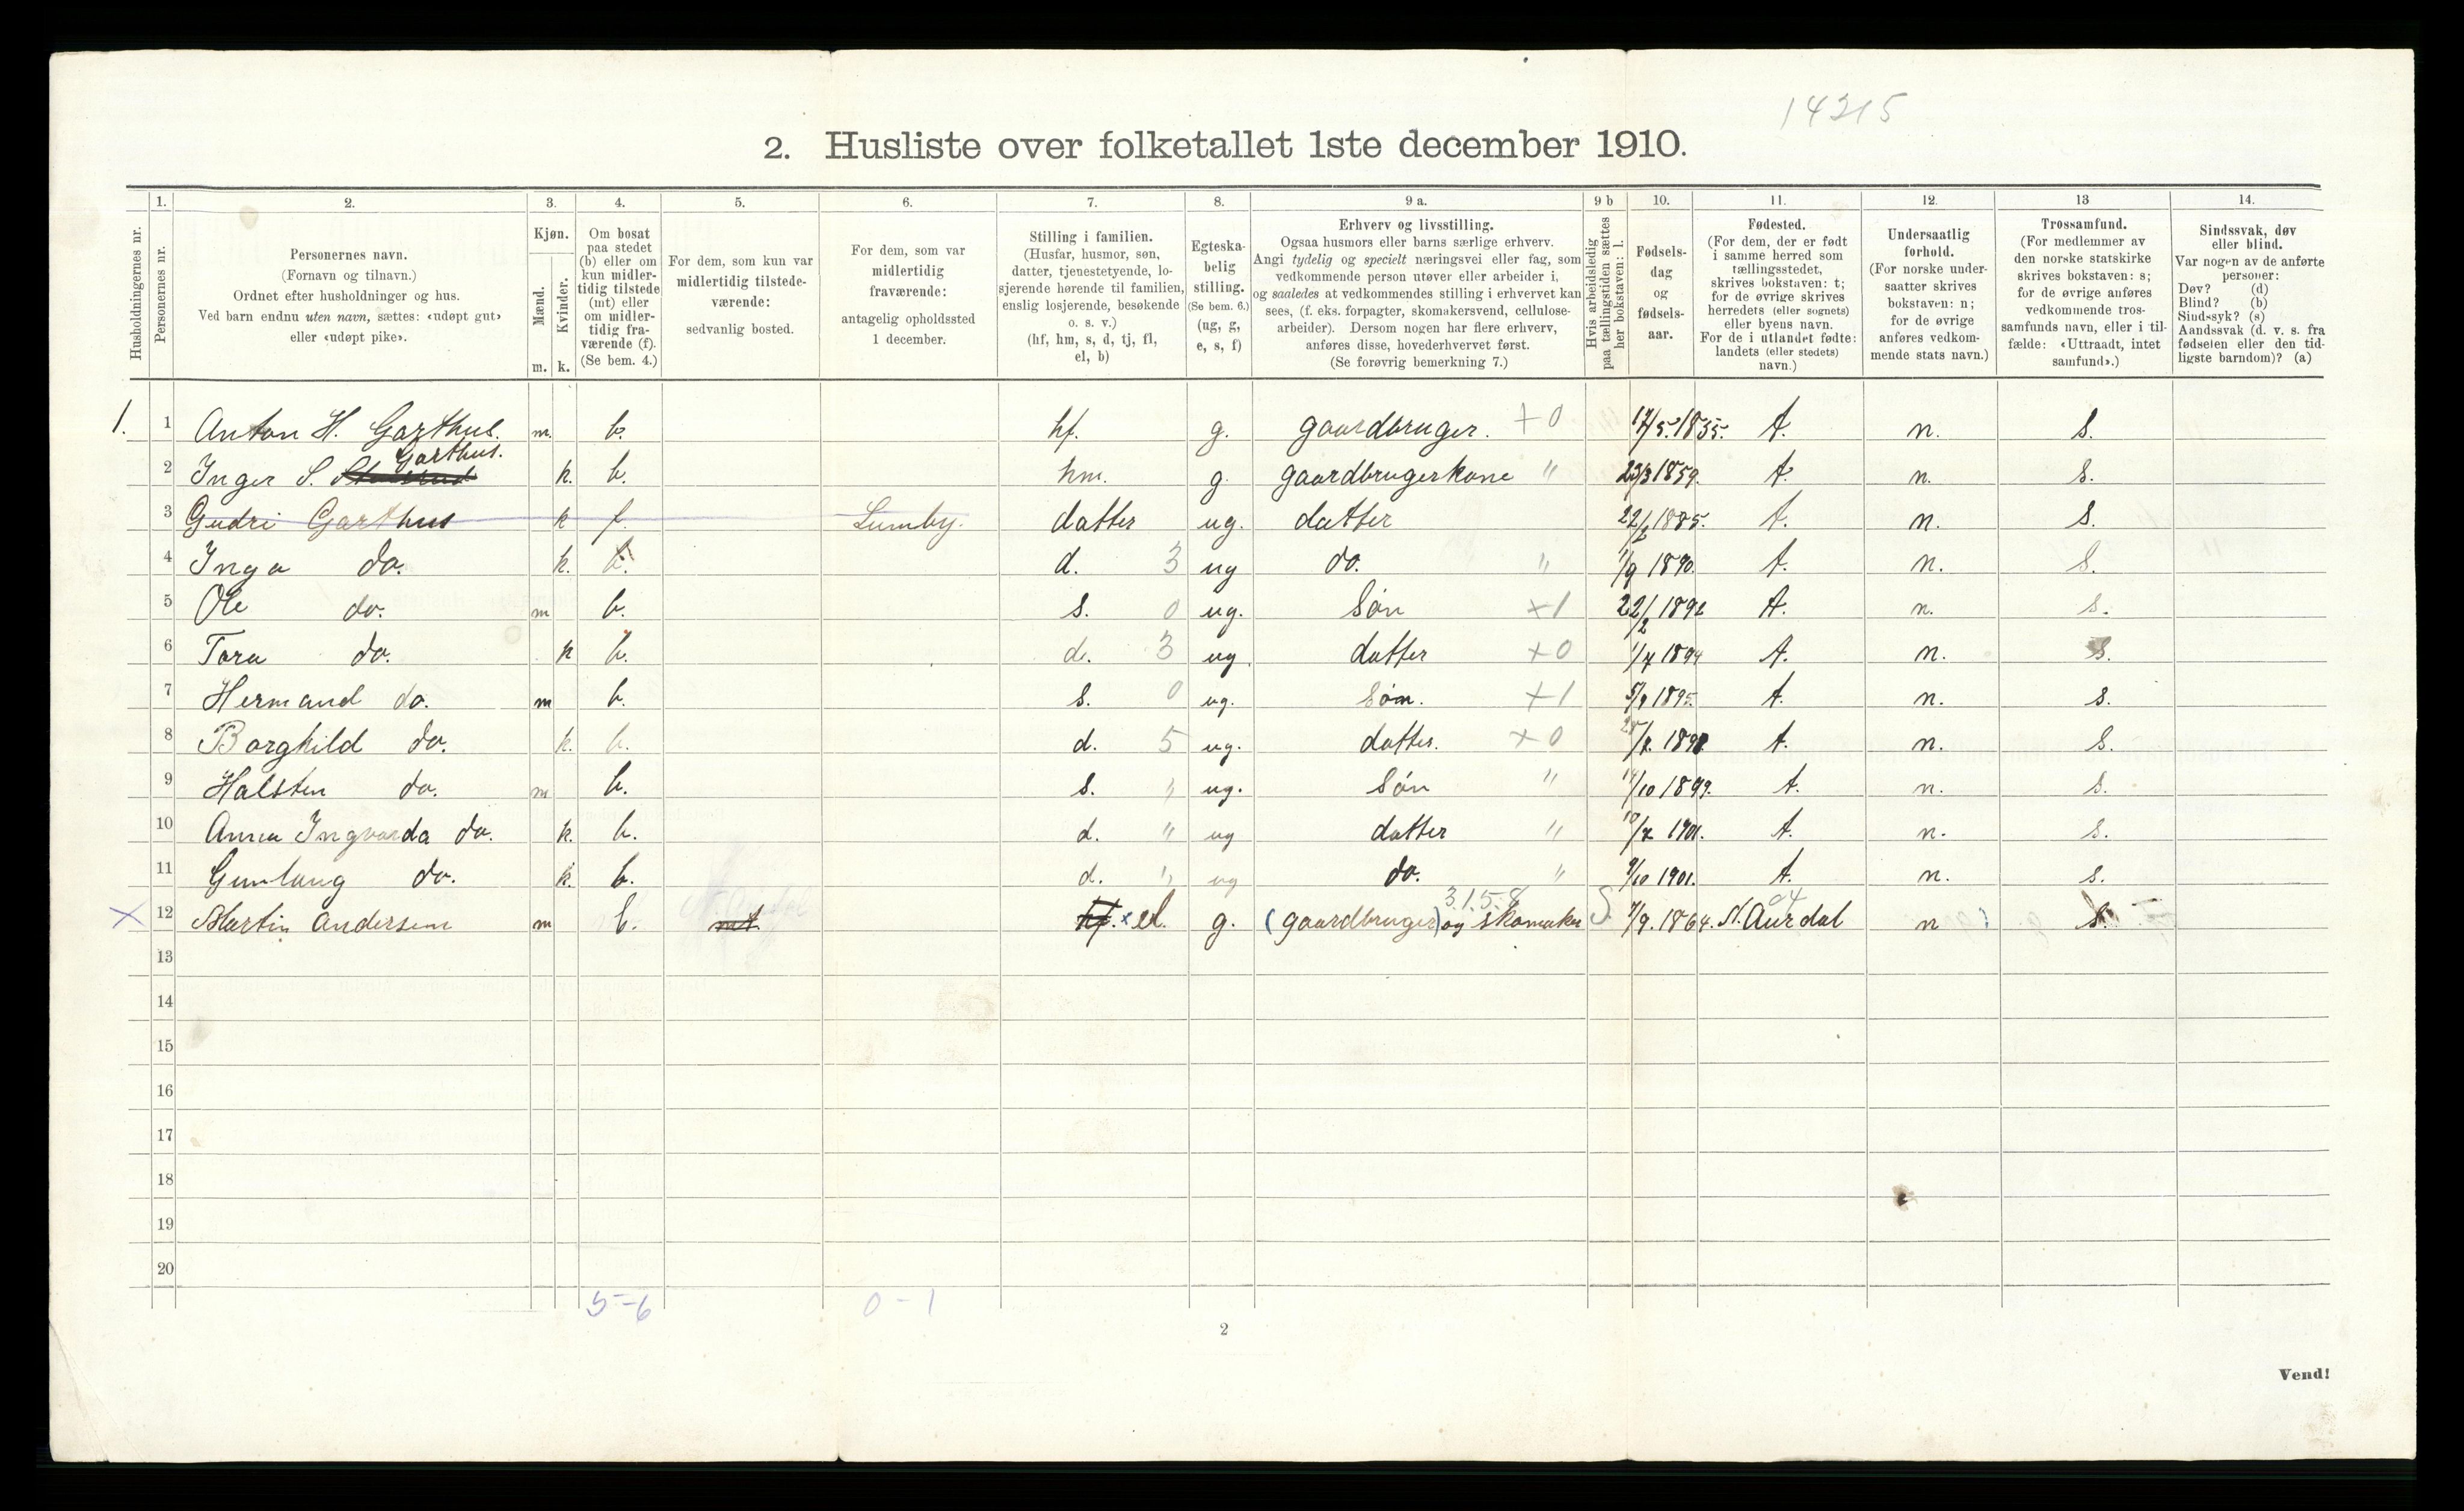 14215
2. Husliste over folketallet 1ste december 1910.
Husholdningernes nr.
1.
Personernes nr.
2.
Personernes navn.
(Fornavn og tilnavn.)
Ordnet efter husholdninger og hus.
Ved barn endnu uten navn, sættes: «udøpt gut»
eller «udøpt pike».
3.
Kjøn.
Mænd.
Kvinder.
m. k.
4.
Om bosat
paa stedet
(b) eller om
kun midler-
tidig tilstede
(mt) eller
om midler-
tidig fra-
værende (f).
(Se bem. 4.)
5.
For dem, som kun var
midlertidig tilstede-
værende:
sedvanlig bosted.
6.
For dem, som var
midlertidig
fraværende:
antagelig opholdssted
1 december.
7.
Stilling i familien.
(Husfar, husmor, søn,
datter, tjenestetyende, lo-
sjerende hørende til familien,
enslig losjerende, besøkende
o. s. v.)
(hf, hm, s, d, tj, fl,
el, b)
8.
Egteska-
belig
stilling.
(Se bem. 6.)
(ug, g,
e, s, f)
9 a.
Erhverv og livsstilling.
Ogsaa husmors eller barns særlige erhverv.
Angi tydelig og specielt næringsvei eller fag, som
vedkommende person utøver eller arbeider i,
og saaledes at vedkommendes stilling i erhvervet kan
sees, (f. eks. forpagter, skomakersvend, cellulose-
arbeider). Dersom nogen har flere erhverv,
anføres disse, hovederhvervet først.
(Se forøvrig bemerkning 7.)
9 b
Hvis arbeidsledig
paa tællingstiden sættes
her bokstaven: l.
10.
Fødsels-
dag
og
fødsels-
aar.
11.
Fødested.
(For dem, der er født
i samme herred som
tællingsstedet,
skrives bokstaven: t;
for de øvrige skrives
herredets (eller sognets)
eller byens navn.
For de i utlandet fødte:
landets (eller stedets)
navn.)
12.
Undersaatlig
forhold.
(For norske under-
saatter skrives
bokstaven: n;
for de øvrige
anføres vedkom-
mende stats navn.)
13
Trossamfund.
(For medlemmer av
den norske statskirke
skrives bokstaven: s;
for de øvrige anføres
vedkommende tros-
samfunds navn, eller i til-
fælde: «Uttraadt, intet
samfund».)
14.
Sindssvak, døv
eller blind.
Var nogen av de anførte
personer:
Døv? (d)
Blind? (b)
Sindssyk? (s)
Aandssvak (d. v. s. fra
fødselen eller den tid-
ligste barndom)? (a)
1. 1 Anton H. Garthus. m. b. hf. g. gaardbruger. + 0 17/5 1835. t. n. s.
Garthus.
2 Inger S. k. b. hm. g. gaardbrugerkone " 23/3 1859. t. n. s.
3 Gudri Garthus k f. Lumby. datter ug. datter 22/2 1885. t. n. s.
4 Inga do. k. b. d. 3 ug do. " 1/9 1890. t. n. s.
5 Ole do. m b. s. 0 ug. Søn +1 22/2 1892 t. n. s.
6 Tora do. k b. d. 3 ug datter +0 1/4 1894 t. n. s.
7 Hermand do. m b. s. 0 ug. Søn. +1 5/9 1895. t. n. s.
8 Borghild do. k. b. d. 5 ug. datter. +0 1898 t. n. s.
9 Halsten do. m b. s. " ug. Søn " 14/10 1899. t. n. s.
10 Anna Ingvarda do. k. b. d. " ug datter " 1901. t. n. s.
11 Gunlaug do. k. b. d. " ug do. " 9/10 1901. t. n. s.
3.1.5.8 04
× 12 Martin Andersen m b. mt hf. × el. g. (gaardbruger) og skomaker S. 7/9. 1864. N. Aurdal n s.
13
14
15
16
17
18
19
20
5-6 0-1
2
Vend!